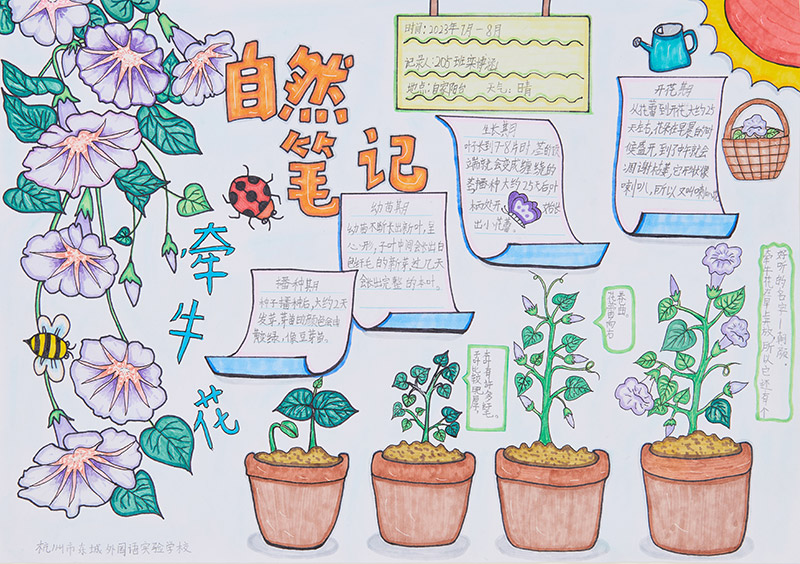 自然
笔记
牵牛花
时间:2023年7月-8月
记录人:205班
地点:自家阳台 天气:晴
播种期
种子播种后,大约2天
发芽,芽苗的颜色
嫩绿,像豆芽苗。
幼苗期
幼苗不断长出新叶,呈
心形,子叶中间会长出白
色绒毛的新芽,过几天
会长出完整的本叶。
生长期
叶子长到7-8片时,茎的顶
端就会变成缠绕的
茎,播种大约25天后叶
出小花蕾。
开花期
从花蕾到开花大约25
天左右,花朵在早晨的时
候盛开,到下午就会
凋谢枯萎,它形状像
喇叭,所以又叫喇叭
卷曲。
弄有许多绒毛。
好听的名字—朝颜。
牵牛花
所以它还有个
杭州市东城外国语实验学校